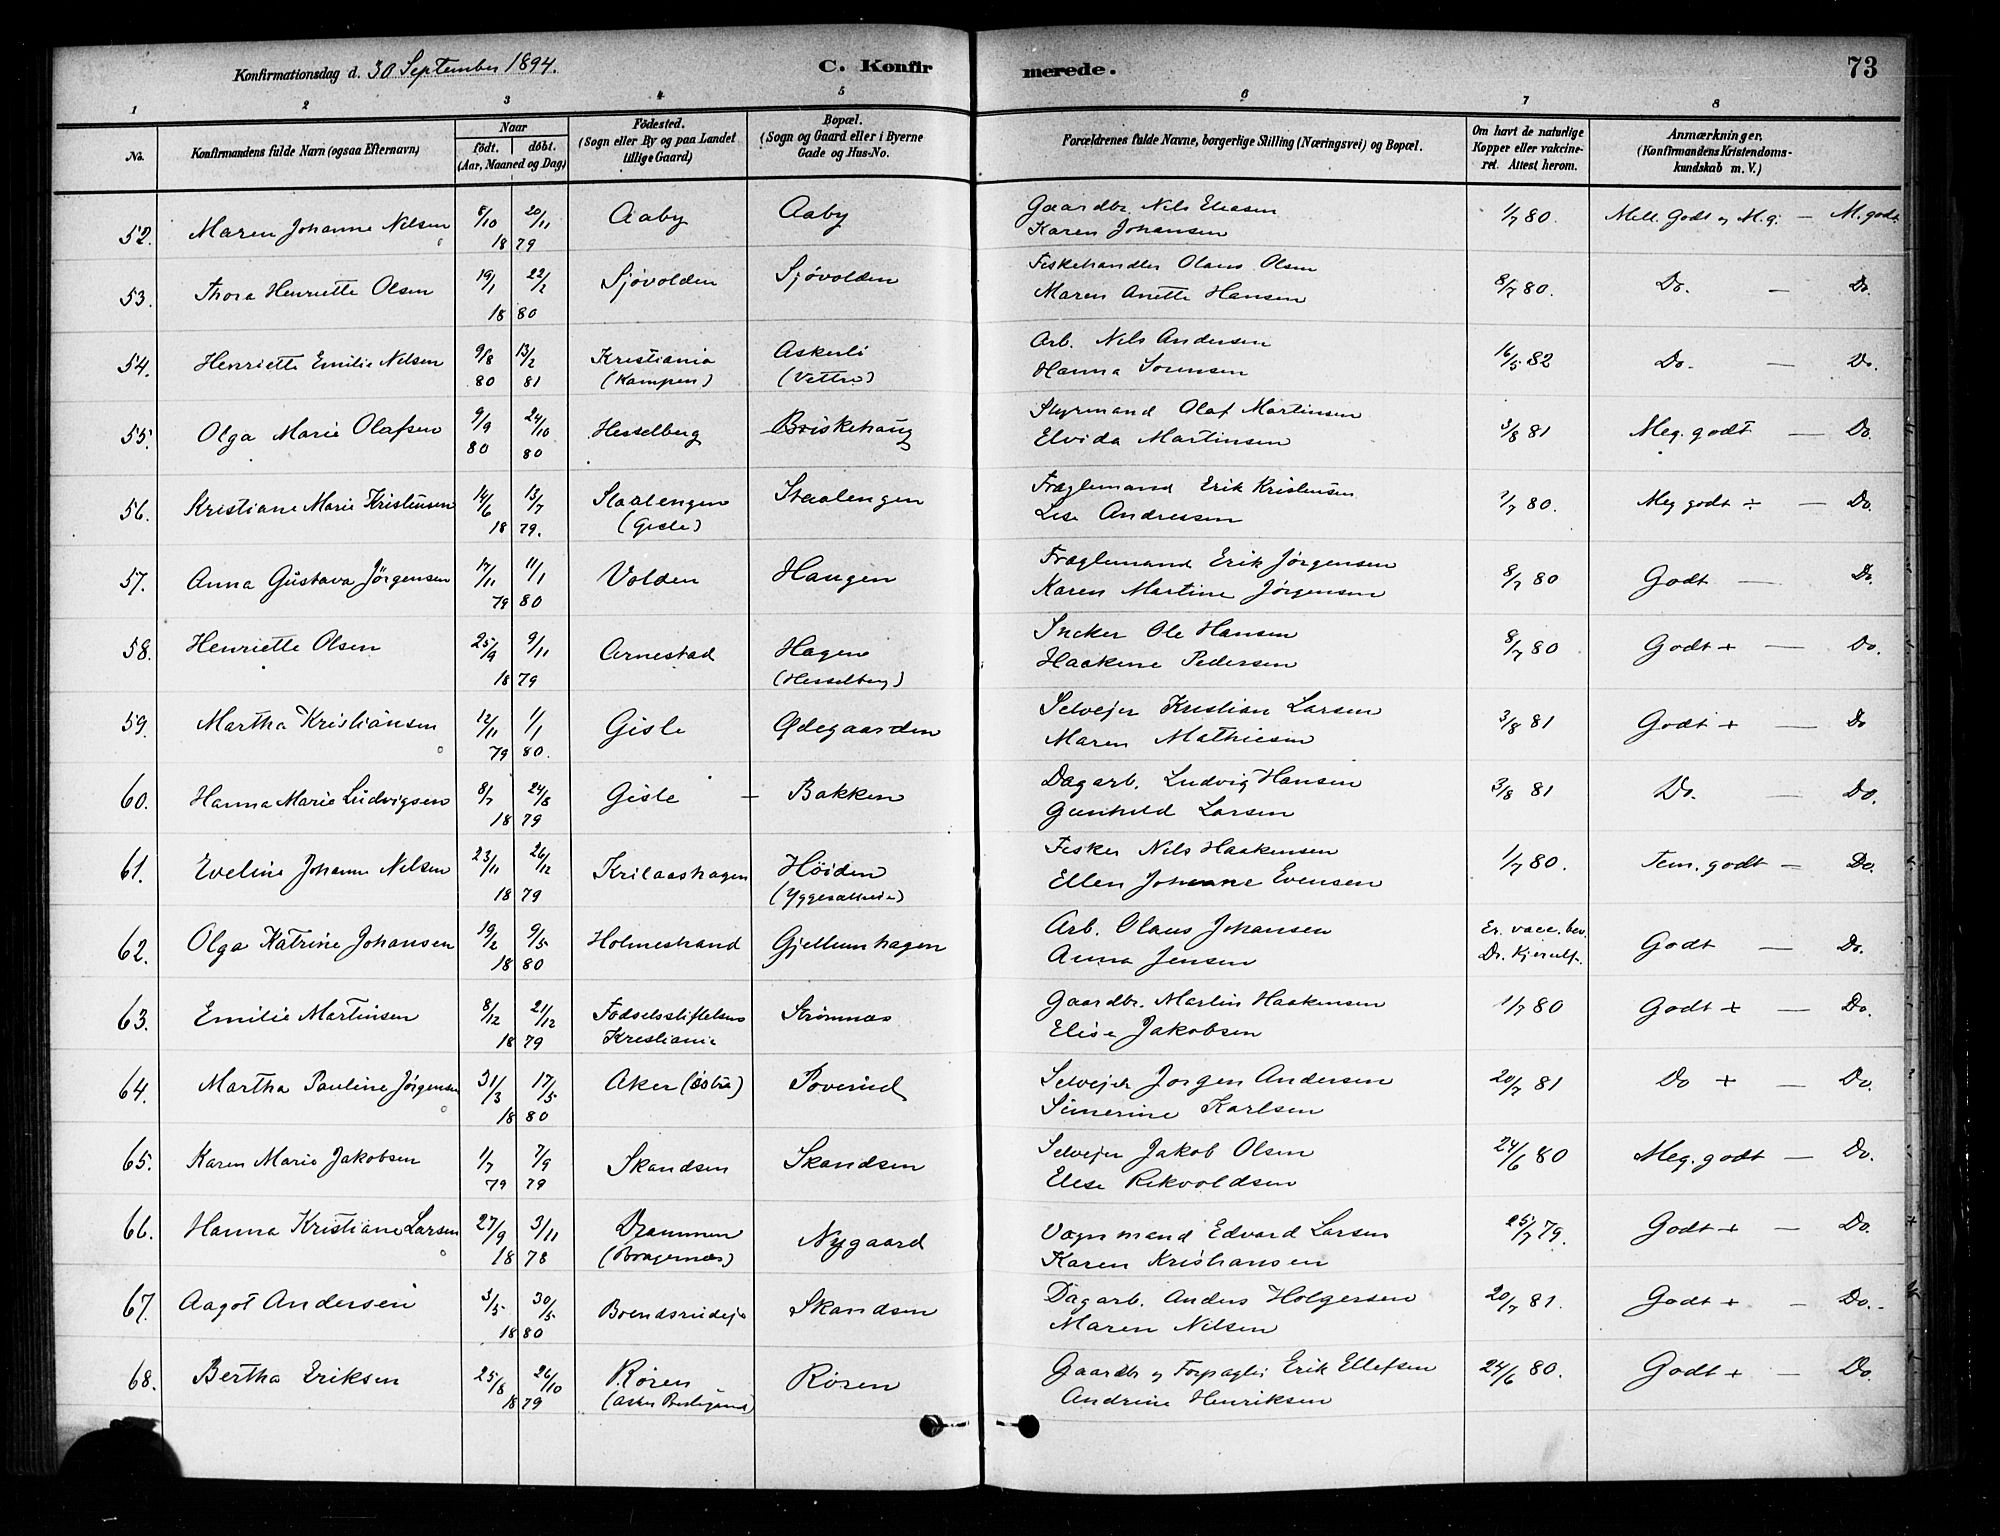 Konfirmationsdag d. 30 September 1894. C. Konfirmerede. 73
1 2 3 4 5 6 7 8
No. Konfirmandens fulde Navn (ogsaa Efternavn) Naar født. døbt. (Aar, Maaned og Dag) Fødested. (Sogn eller By og paa Landet tillige Gaard) Bopæl. (Sogn og Gaard eller i Byerne Gade og Hus-No. Forældrenes fulde Navne, borgerlige Stilling (Næringsvei) og Bopæl. Om havt de naturlige Kopper eller vakcineret. Attest herom. Anmærkninger. (Konfirmandens Kristendomskundskab m. V.)
52. Maren Johanne Nelsen 8/10 20/11 Aaby Aaby Gaardbr. Nils Eliasen 1/7 80. Mell. Godt og M.g. — M. godt
18 79 Karen Johansen
53. Thora Henriette Olsen 19/1 22/2 Sjøvolden Sjøvolden Fiskehandler Olaus Olsen 8/7 80. Do. — Do.
18 80 Maren Anette Hansen
54. Henriette Emilie Nelsen 9/8 13/2 Kristiania Askerli Arb. Nils Andersen 16/5 82 Do. — Do.
80 81 (Kampen) (Vettre) Hanna Sørensen
55. Olga Marie Olafsen 9/9 24/10 Hesselberg Briskehaug Styrmand Olaf Martinsen 3/8 81 Meg. godt — Do.
80 80 Elvida Martinsen
56. Kristiane Marie Kristensen 14/6 13/7 Staalengen Staalengen Fræglemand Erik Kristensen 1/7 80. Meg godt ÷ — Do.
18 79. (Gisle) Lise Andressen
57. Anna Gustava Jørgensen 17/11 11/1 Volden Haugen Fræglemand Erik Jørgensen 8/7 80 Godt — Do.
79 80 Karen Martine Jørgensen
58. Henriette Olsen 25/9 9/11 Arnestad Hagen Sneker Ole Hansen 8/7 80 Godt + — Do.
18 79 (Hesselberg) Haakene Pedersen
59. Martha Kristiansen 12/11 1/1 Gisle Ødegaarden Selvejer Kristian Larsen 3/8 81 Godt + — Do
79 80. Maren Mathiesen
60. Hanna Marie Ludvigsen 8/7 24/8 Gisle — Bakken Dagarb. Ludvig Hansen 3/8 81 Do. — Do.
18 79 Gunhild Larsen
61. Eveline Johanne Nelsen 23/11 26/12 Krilaashagen Høiden Fisker Nils Haakensen 1/7 80. Tem. godt — Do.
18 79 Ellen Johanne Evensen
62. Olga Katrine Johansen 19/2 9/5 Holmestrand Gjellumhagen Arb. Olaus Johansen Er vacc. bev. Godt — Do.
18 80 Anna Jensen Dr. Kjerulf.
63. Emilie Martinsen 8/12 21/12 Fødselsstiftelsen Strømnæs Gaardbr. Martin Haakensen 1/7 80 Godt + — Do.
18 79 Kristiania Elise Jakobsen
64. Martha Pauline Jørgensen 31/3 17/5 Aker (østre) Poverud Selvejer Jørgen Andersen 20/7 81 Do + — Do.
18 80 Simerine Karlsen
65. Karen Marie Jakobsen 1/7 7/9 Skandsen Skandsen Selvejer Jakob Olsen 24/6 80 Meg. godt — Do.
79 79 Elise Rikvoldsen
66. Hanna Kristiane Larsen 27/9 3/11 Drammen Nygaard Vognmand Edvard Larsen 25/7 79. Godt + — Do.
18 78 (Bragernæs) Karen Kristiansen
67. Aagot Andersen 3/5 30/5 Boendsrudeje Skandsen Dagarb. Anders Holgersen 20/7 81. Godt + — Do.
18 80 Maren Nilsen
68. Bertha Eriksen 25/8 26/10 Røren Røren Gaardbr og Forpagter Erik Ellefsen 24/6 80. Godt + — Do.
18 79 Andrine Henriksen